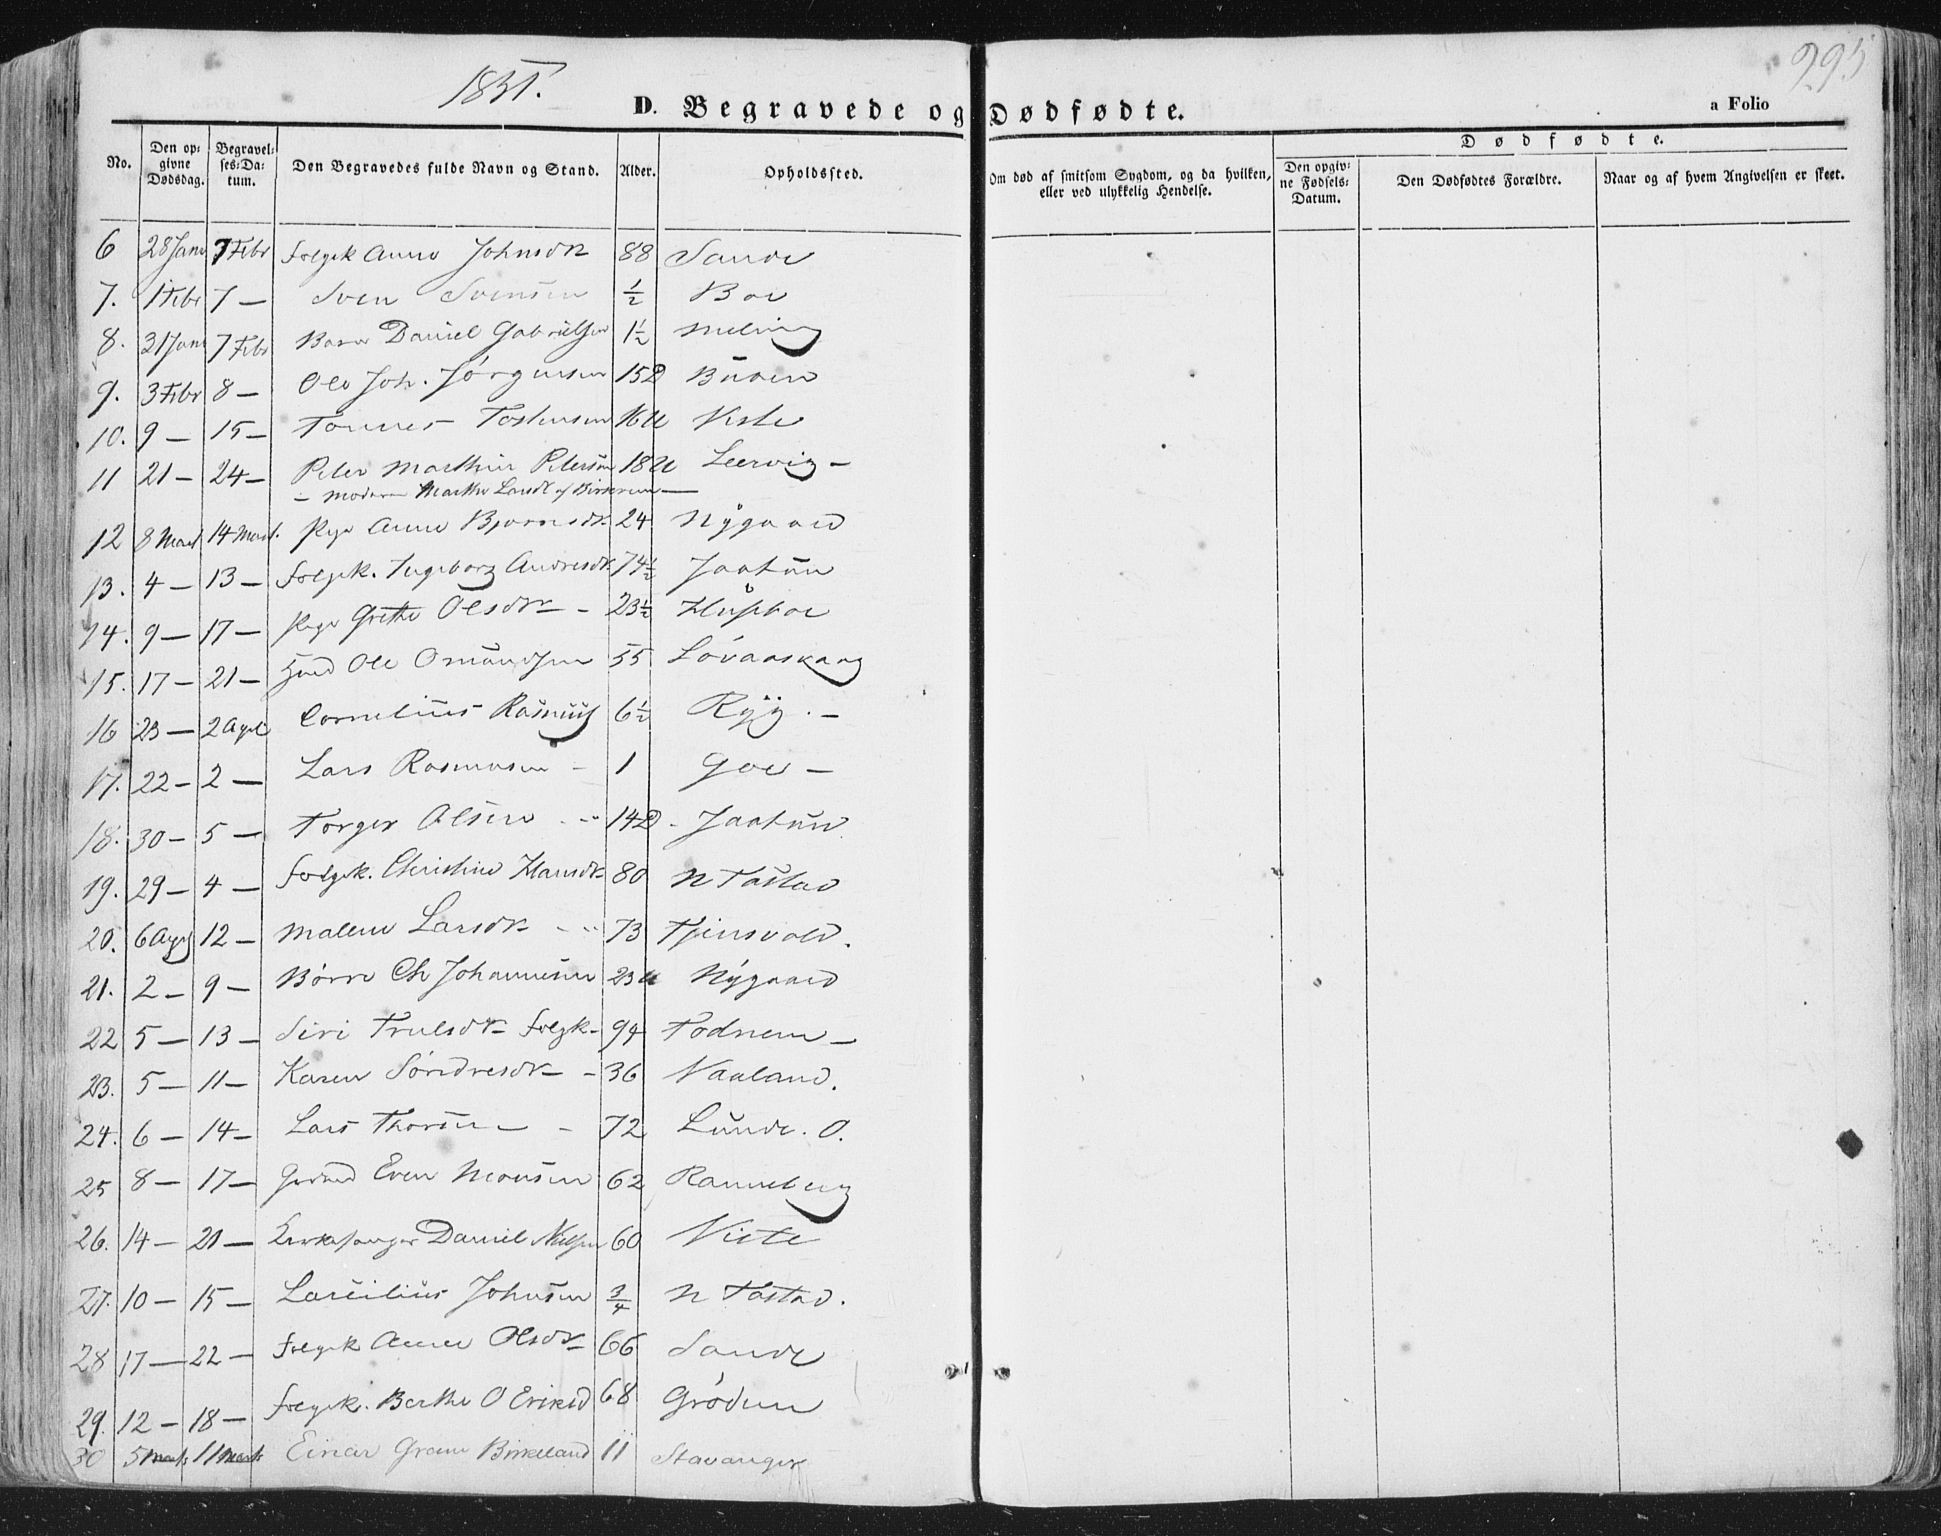 295
1851.
D. Begravede og Dødfødte.
a Folio
No.
Den opgivne Dødsdag.
Begravelses-Datum.
Den Begravedes fulde Navn og Stand.
Alder.
Opholdssted.
Om død af smitsom Sygdom, og da hvilken, eller ved ulykkelig Hendelse.
Dødfødte.
Den opgivne Fødsels-Datum.
Den Dødfødtes Forældre.
Naar og af hvem Angivelsen er skeet.
6 28 Janr 7 Febr Folgek Anne Johnsdtr 88 Sande
7. 1 Febr 7 — Sven Svensen ½ Boe
8. 31 Janr 7 Febr Daniel Gabrielsen 1½ Meling
9. 3 Febr 8 — Ole Joh. Jörgensen 15 D
10. 9 — 15 — Tonnes Tostensen 16 U Viste
11 21 — 24 — Peter Marthin Petersen 18 U Leervig —
— Moderen Marthe Larsdt af Birkrem —
12 8 Mart 14 Mart. Pige Anne Bjornsdtr 24 Nÿgaard
13. 4 — 13 — Folgek. Ingeborg Andresdtr 74½ Jaatun
14. 9 — 17 — Pige Grethe Olsdtr — 23½
15. 17 — 21 — Ole Omundsen 55
16 23 — 2 Apl Cornelius Rasmus 6½ Ryg. —
17. 22 — 2 — Lars Rasmusen — 1 Goe —
18. 30 — 5 — Torger Olsen 14 D — Jaatun
19. 29 — 4 — Folgek. Christine Hansdtr 80 N Tastad
20. 6 Apr 12 — Malene Larsdtr 73 Tjensvold.
21. 2 — 9 — Börre Ch Johannesen 23 U Nÿgaard
22 5 — 13 — Siri Trulsdtr Folgk — 94 Todnem —
23. 5 — 11 — Karen Söredresdtr — 36 Vaaland.
24. 6 — 14 — Lars Thorsen — 72 Lunde. O.
25 8 — 17 — Even Monsen 62 Ranneberg
26. 14 — 21 — Kirkesanger Daniel Nilsen 60 Viste
27. 10 — 15 — Johnsen ¾ N Tastad.
28 17 — 22 — Folgek Anne Olsdtr 66 Sande
29. 12 — 18 — Folgek. Berthe O Eriksd 68 Grödem
30 5 Marts 11 Marts Einar Gram Birkeland 11 Stavanger